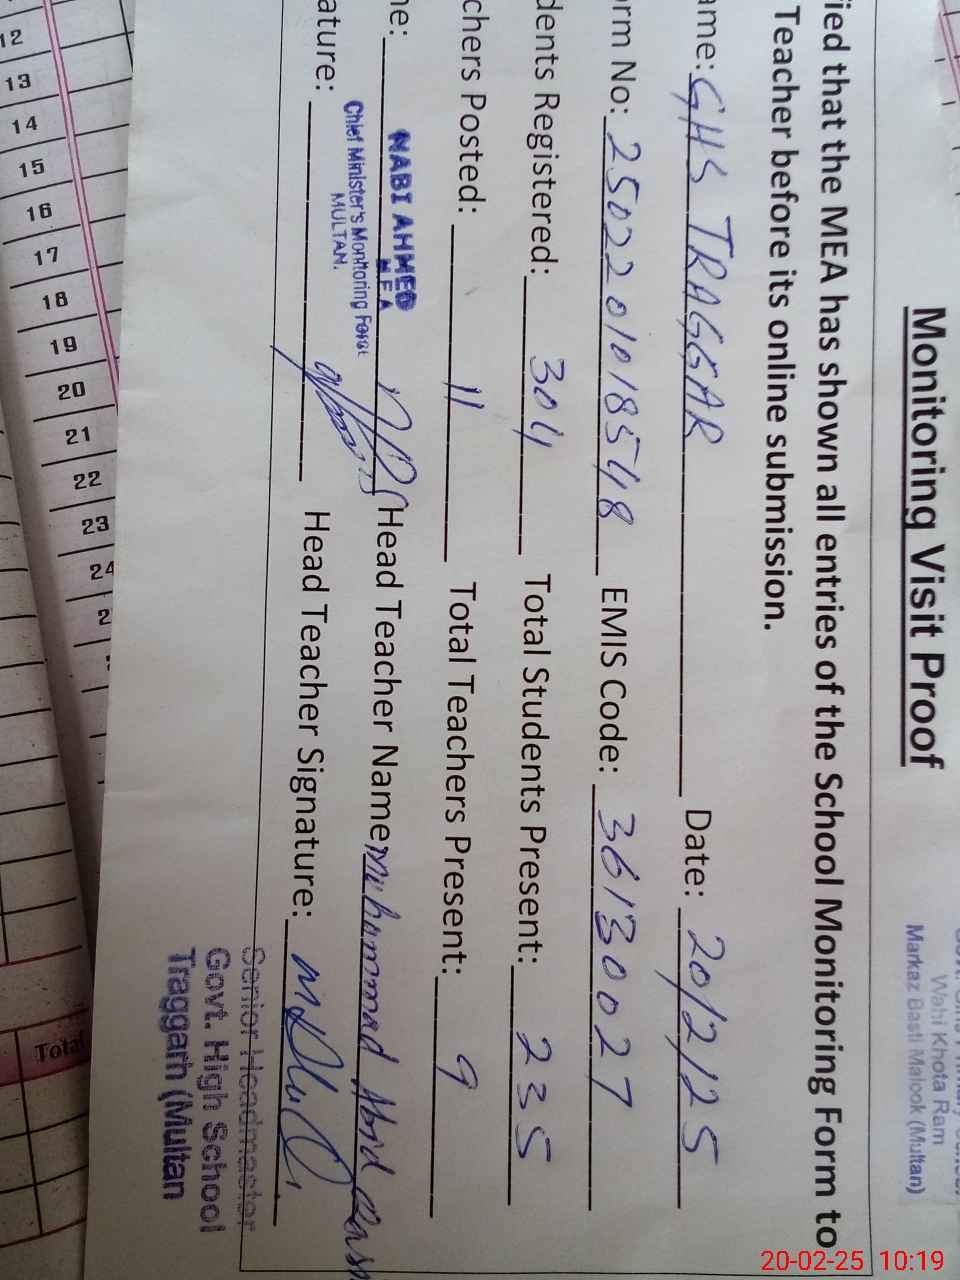 Monitoring Visit Proof
ied that the MEA has shown all entries of the School Monitoring Form to
Teacher before its online submission.
ame: GHS TRAGGAR Date: 20/2/25
orm No: 2502201018548 EMIS Code: 36130027
dents Registered: 304 Total Students Present: 235
chers Posted: 11 Total Teachers Present: 9
me: Head Teacher Name Muhammad Abid
NABI AHMED
MEA
Chief Minister's Monitoring Force
MULTAN.
ature: Head Teacher Signature:
Senior Headmaster
Govt. High School
Traggarh (Multan
Wahi Khota Ram
Markaz Basti Malook (Multan)
12
13
14
15
16
17
18
19
20
21
22
23
24
2
Total
20-02-25 10:19